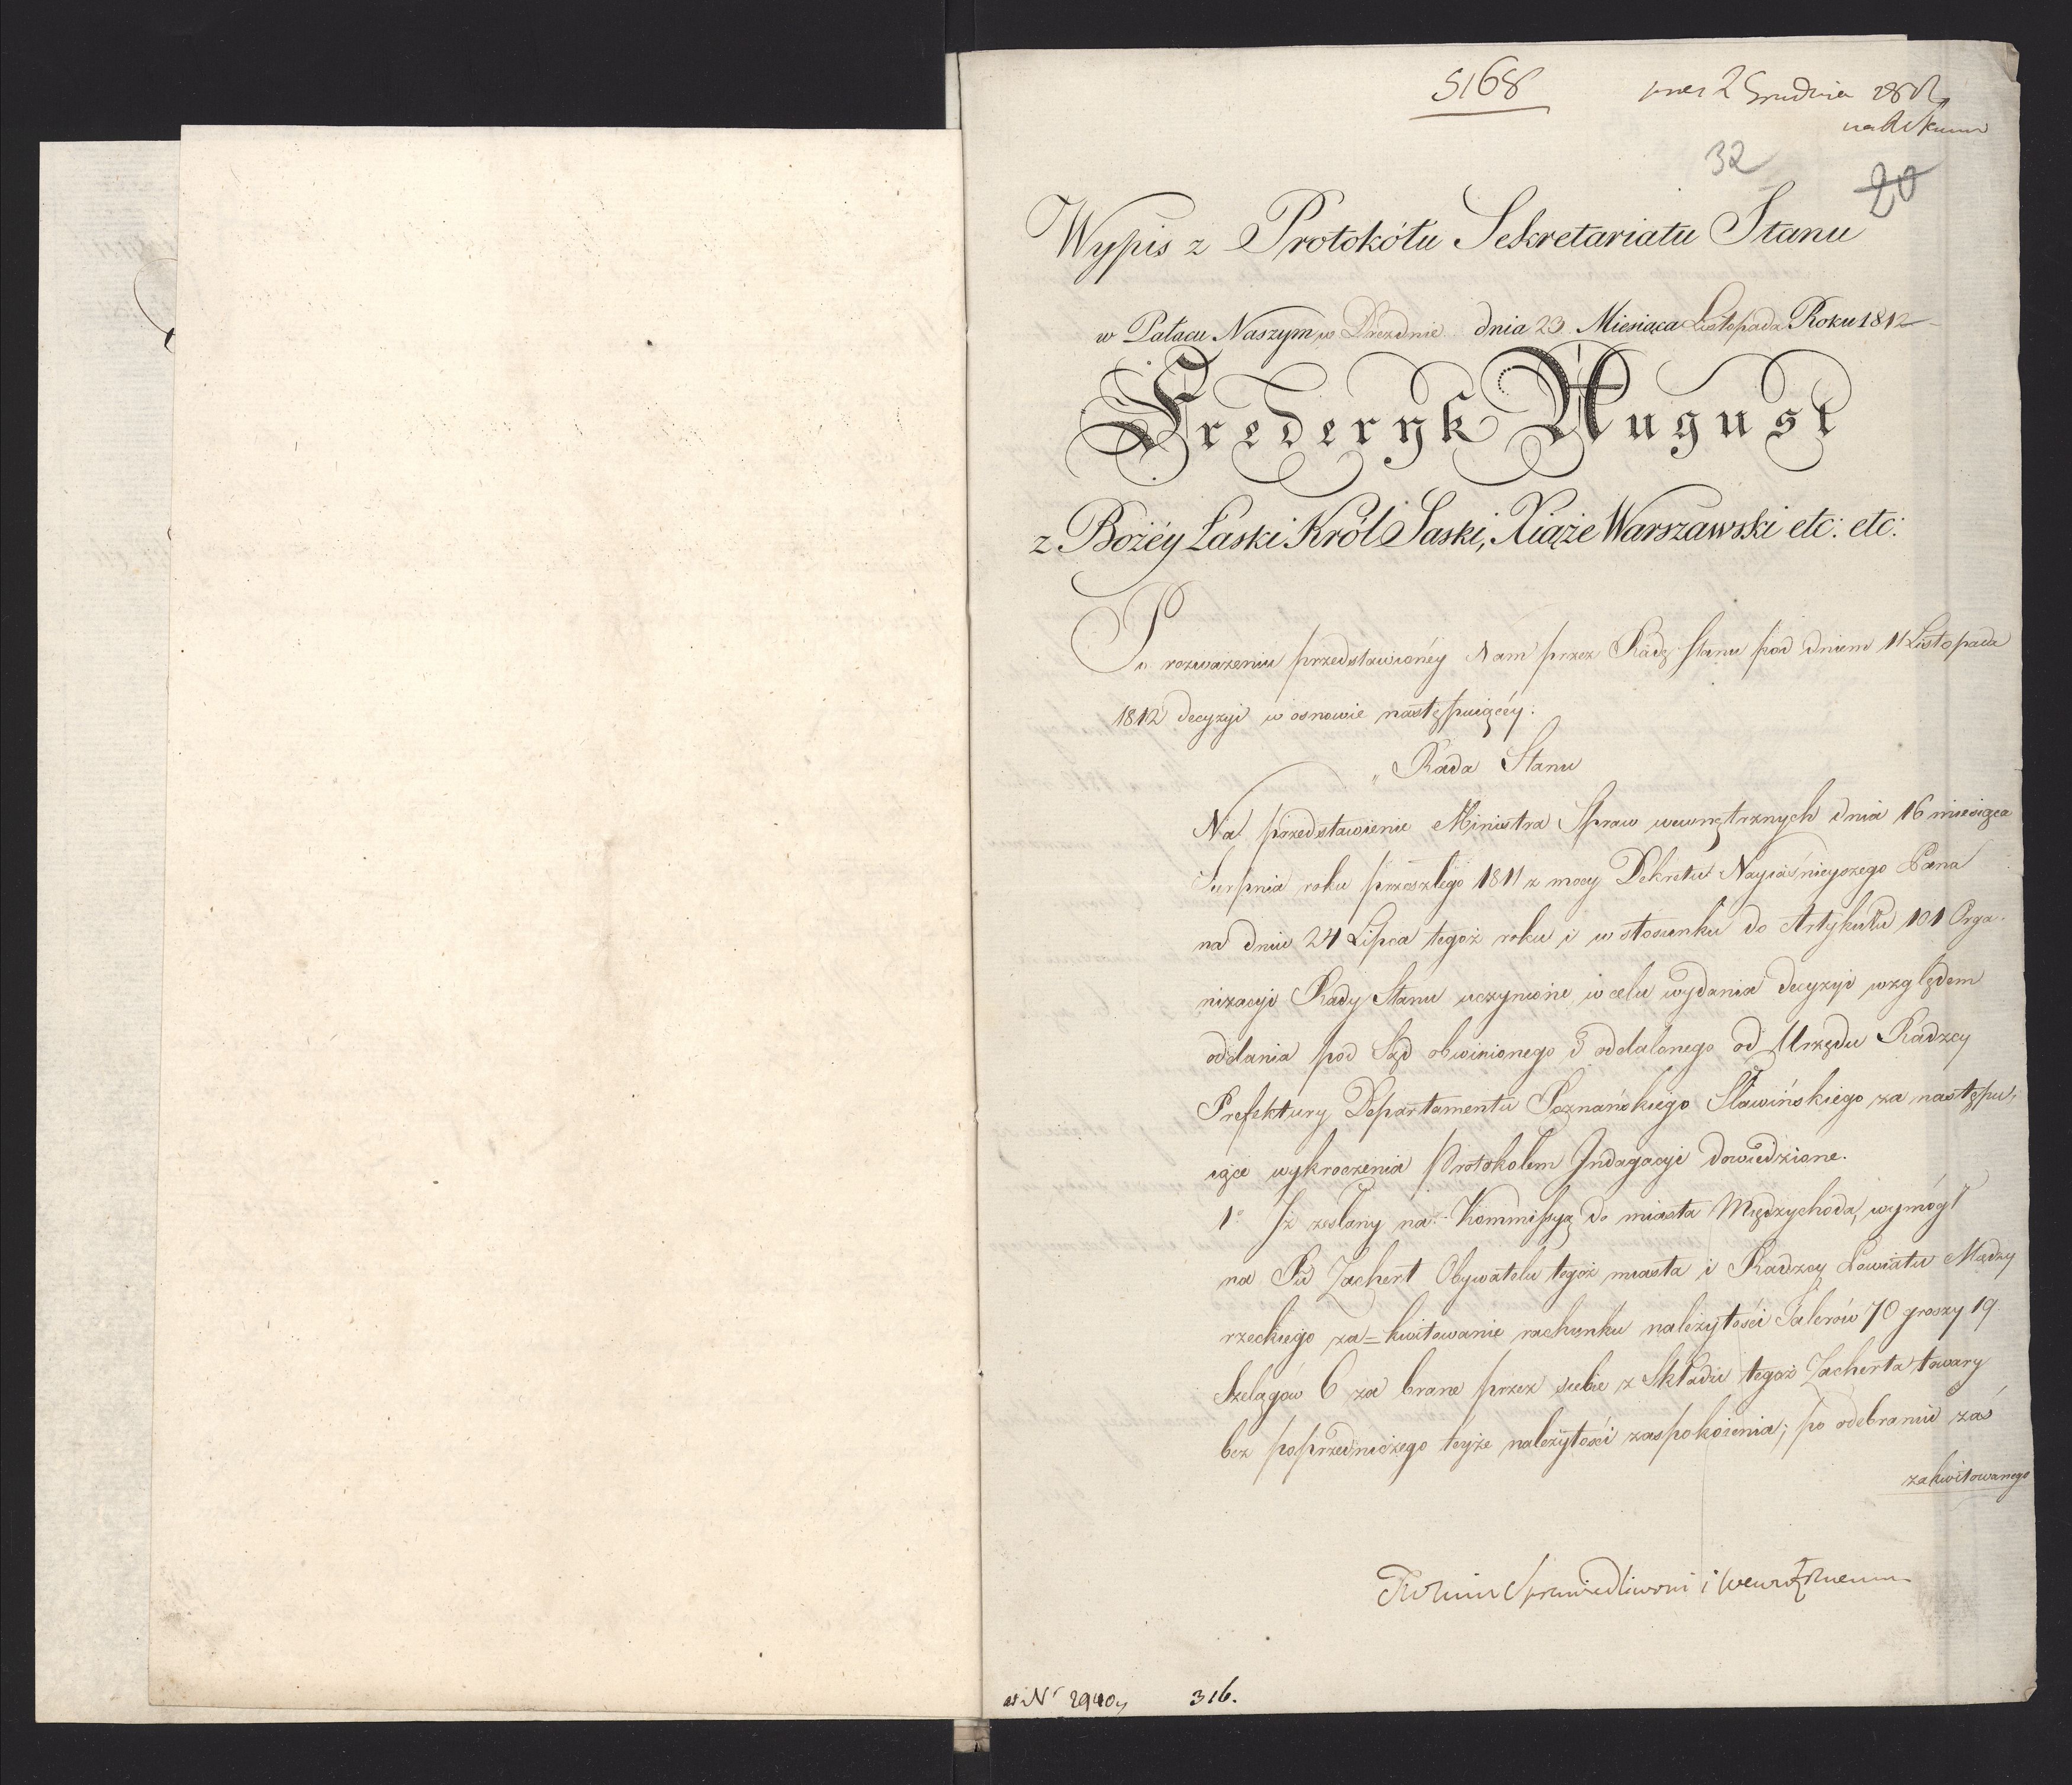 5168
2 Grudnia 1812
32
20
Wypis z Protokółu Sekretariatu Stanu
w Pałacu Naszym w Dreznie dnia 23 Miesiąca Listopada Roku 1812
Frederyk August
z Bożéy Łaski Król Saski, Xiąże Warszawski etc: etc:
Po rozważeniu przedstawionéy Nam przez Radę Stanu pod dniem 11 Listopada
1812 decyzyi w osnowie następuiącéy:
„Rada Stanu
Na przedstawienie Ministra Spraw wewnętrznych dnia 16 miesiąca
Sierpnia roku przeszłego 1811 z mocy Dekretu Nayiaśnieyszego Pana
na dniu 24 Lipca tegoż roku i w stosunku do Artykułu 101 Orga-
nizacyi Rady Stanu uczynione, w celu wydania decyzyi względem
oddania pod Sąd obwinionego i oddalonego od Urzędu Radzcy
Prefektury Departamentu Poznańskiego Sławińskiego za następu-
iące wykroczenia Protokołem Indagacyi dowiedzione.
1o Iż zesłany na Kommissyą do miasta Międzychoda, wymógł
na Pu Zachert Obywatelu tegoż miasta i Radzcy Powiatu Między
rzeckiego za=kwitowanie rachunku należytości Talerów 70 groszy 19
Szelągów 6 za brane przez siebie z Składu tegoż Zacherta towary
bez poprzedniczego teyże należytości zaspokoienia; po odebraniu zaś
zakwitowanego
Sprawiedliwości i wewnętrznemu
ad Nr 2940
316.